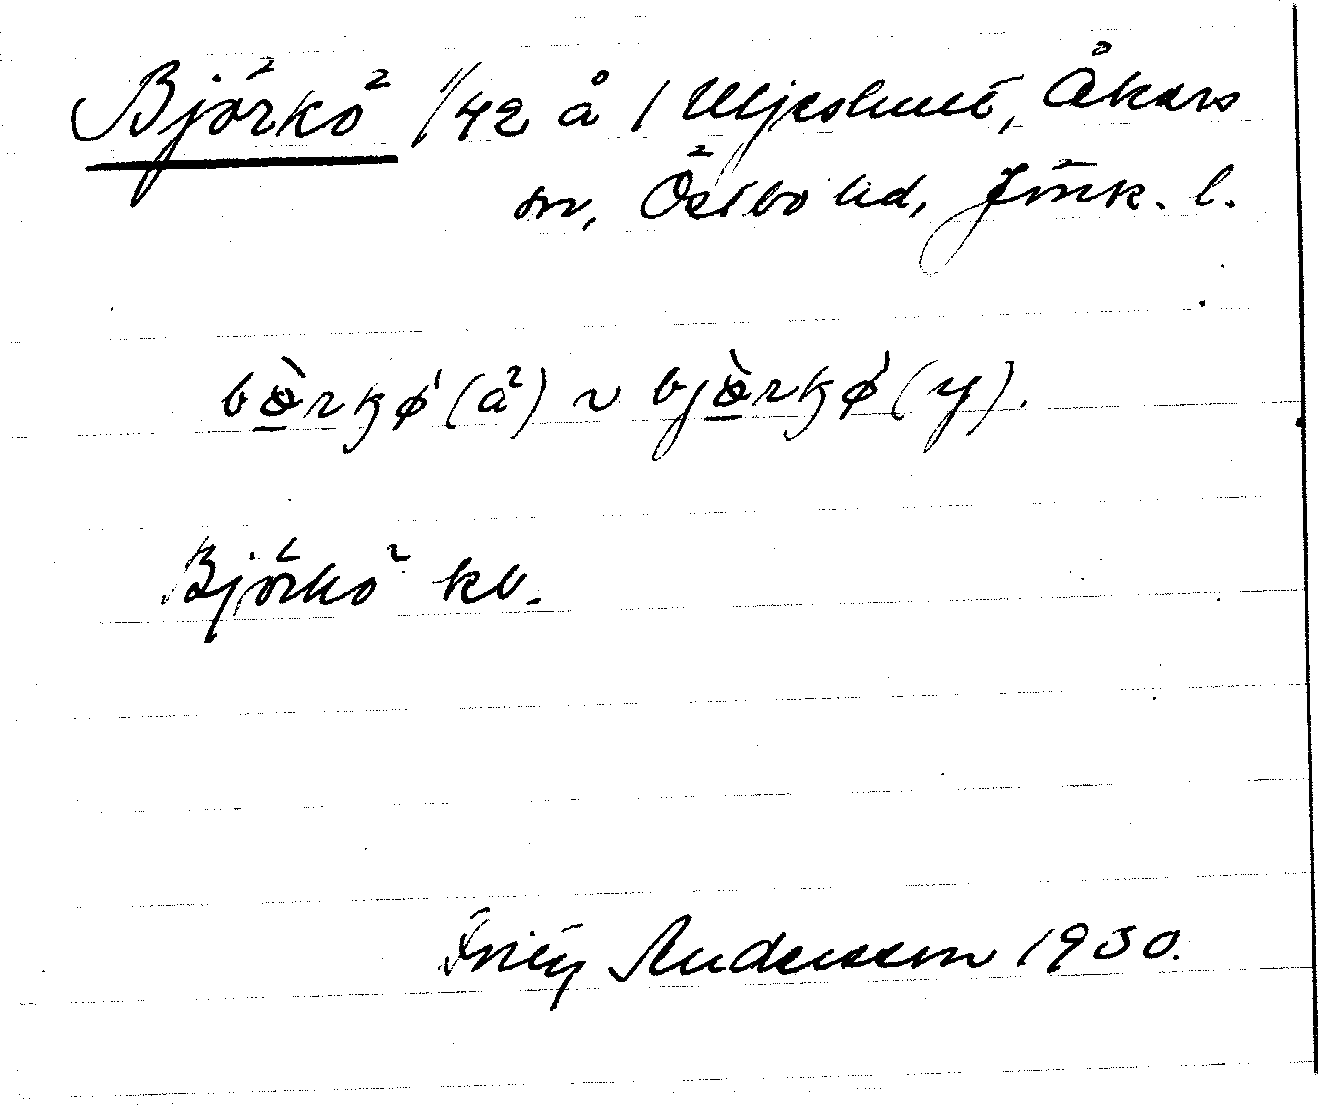 Björkö 1/42 å 1 Uljeshult, Åkers
sn, Östbo hd, Jönk. l.
bö̀rkø' (ä) ~ bjö̀rkø' (y).
Björkö kb.
Andersson 1930.